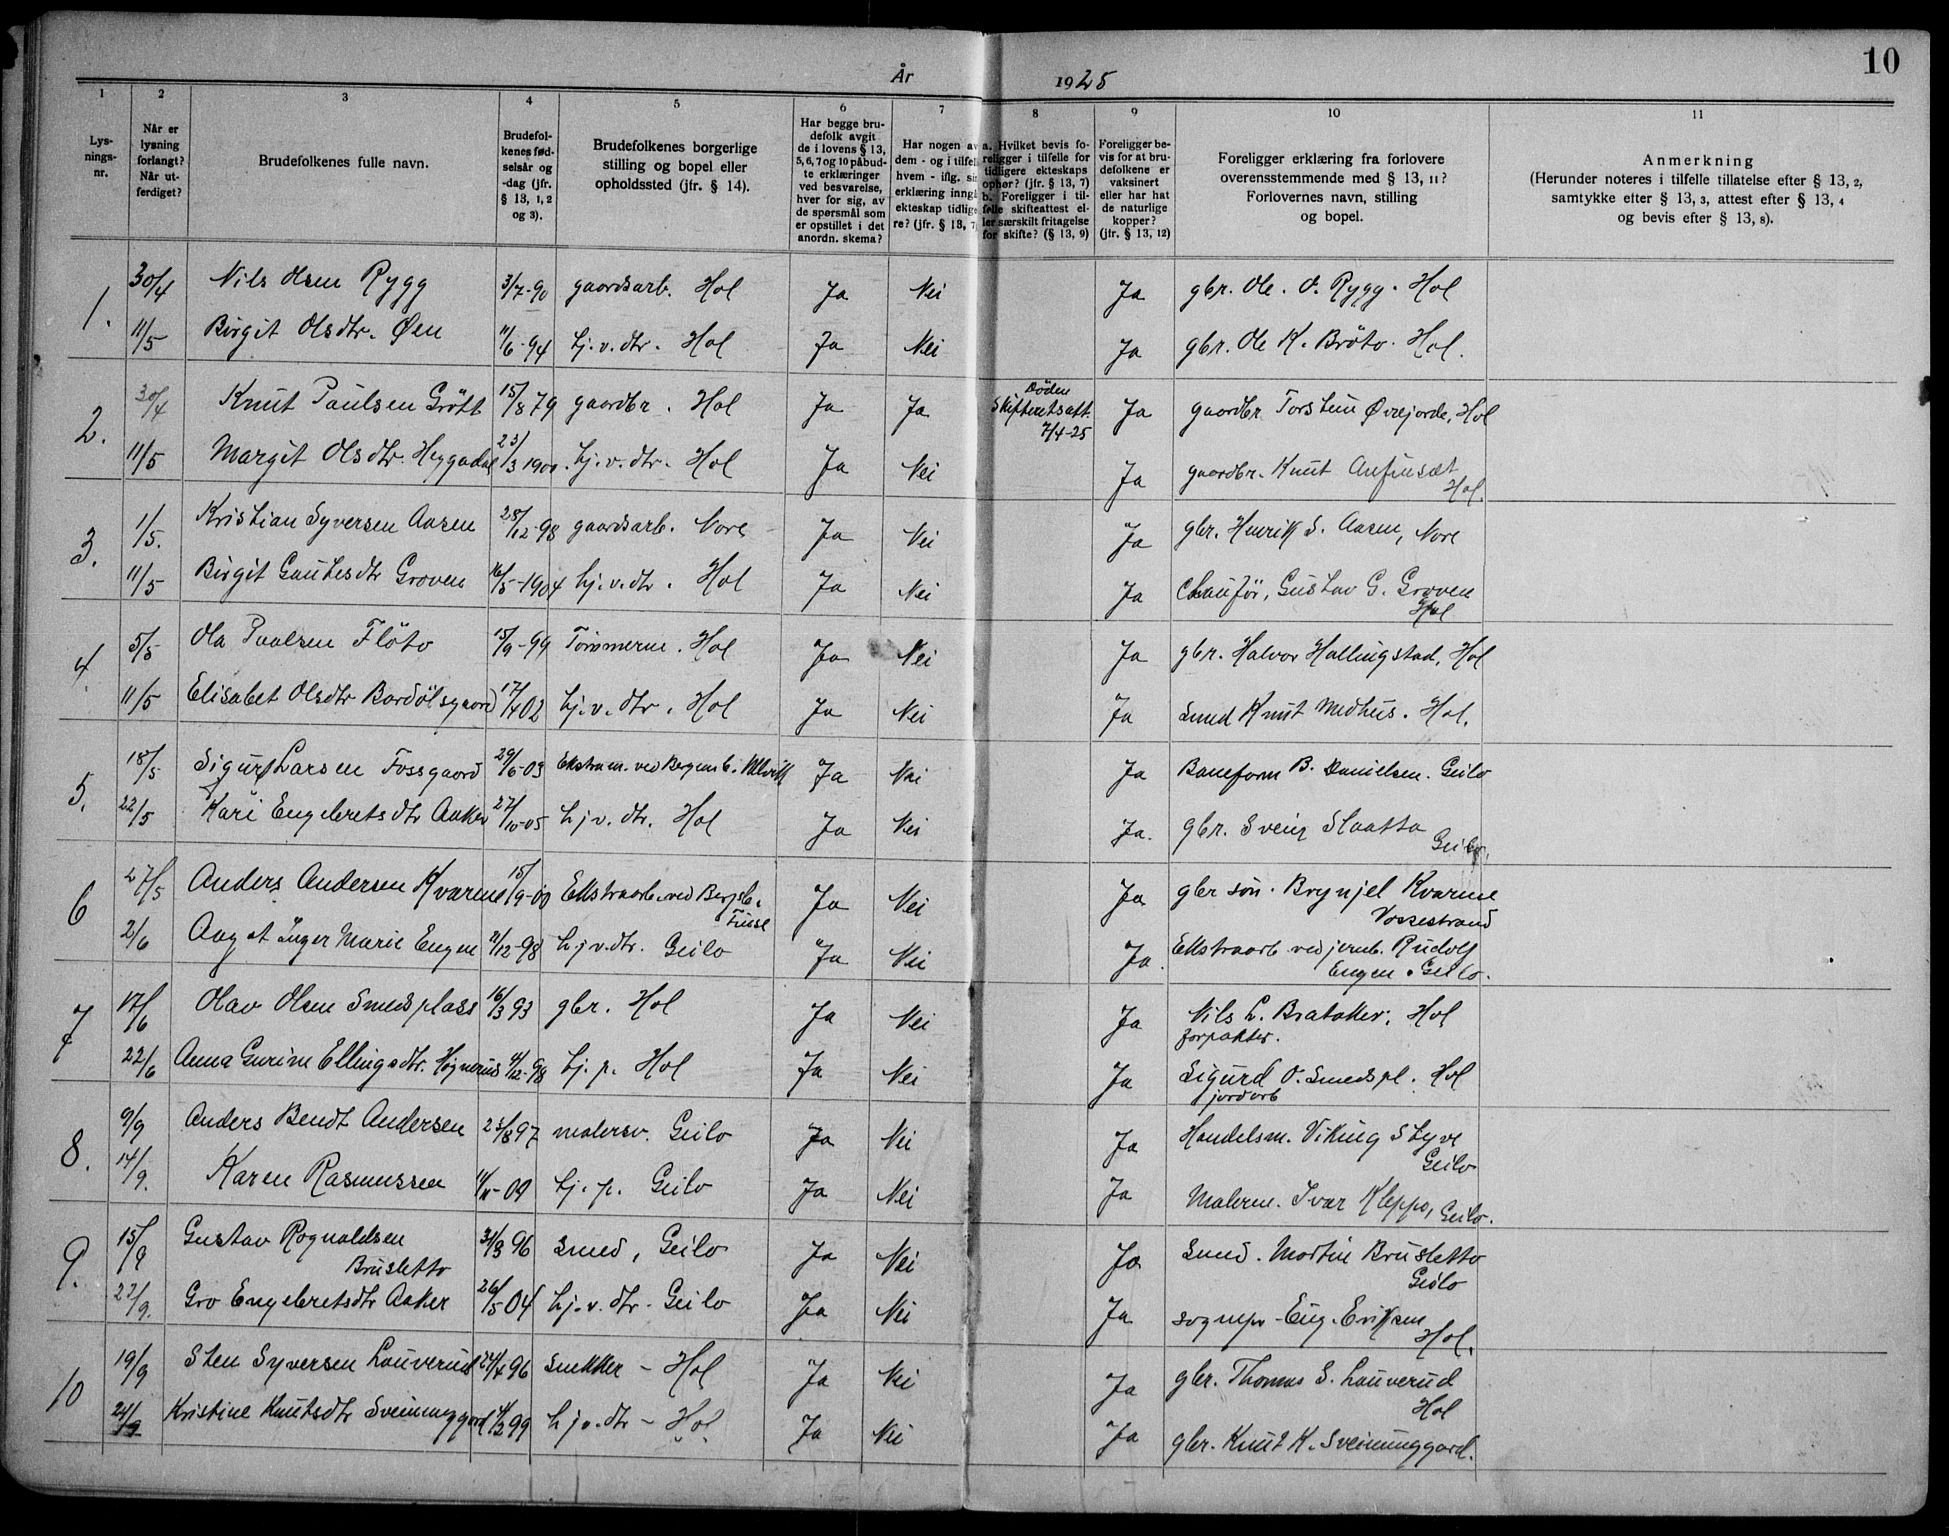 10
År 1925
1 2 3 4 5 6 7 8 9 10 11
Lys-
nings-
nr.
Når er
lysning
forlangt?
Når ut-
ferdiget?
Brudefolkenes fulle navn.
Brudefol-
kenes fød-
selsår og
-dag (jfr.
§ 13, 1, 2
og 3).
Brudefolkenes borgerlige
stilling og bopel eller
opholdssted (jfr. § 14).
Har begge bru-
defolk avgit
de i lovens § 13,
5, 6, 7 og 10 påbud-
te erklæringer
ved besvarelse,
hver for sig, av
de spørsmål som
er opstillet i det
anordn. skema?
Har nogen av
dem - og i tilfelle
hvem - iflg. sin
erklæring inngå
ekteskap tidlige
re? (jfr. § 13, 7
a. Hvilket bevis fo-
religger i tilfelle for
tidligere ekteskaps
ophør? (jfr. § 13, 7)
b. Foreligger i til-
felle skifteattest el-
ler særskilt fritagelse
for skifte? (§ 13, 9)
Foreligger be-
vis for at bru-
defolkene er
vaksinert
eller har hat
de naturlige
kopper?
(jfr. § 13, 12)
Foreligger erklæring fra forlovere
overensstemmende med § 13, 11?
Forlovernes navn, stilling
og bopel.
Anmerkning
(Herunder noteres i tilfelle tillatelse efter § 13, 2,
samtykke efter § 13, 3, attest efter § 13, 4
og bevis efter § 13, 8).
1. 30/4 Nils Olsen Rygg 3/7-90 gaardsarb. Hol Ja Nei Ja gbr. Ole. O. Rygg. Hol
11/5 Birgit Olsdtr. Øen 11/6-94 hj.v.dtr. Hol Ja Nei Ja gbr. Ole K. Bröto. Hol.
2. 30/4 Knut Paulsen Grött 15/8 79 gaardbr. Hol Ja Ja Döden
Skifteretsatt.
7/4-25 Ja gaardbr Torstein Øvrejorde, Hol
11/5 Margit Olsdtr. Heggadal 23/3 1900. hj.v.dtr. Hol Ja Nei Ja gaardbr. Knut Anfinsæt
Hol.
3. 1/5. Kristian Syversen Aasen 28/12-98 gaardsarb. Nore Ja Nei Ja gbr. Henrik S. Aasen, Nore
11/5 Birgit Gautesdtr Groven 16/5-1904 hj.v.dtr. Hol Ja Nei Ja Chaufför, Gustav G. Groven
Hol
4. 5/5 Ola Paalsen Flöto 15/9-99 Tömmerm. Hol Ja Nei Ja gbr. Halvor Hallingstad, Hol
11/5 Elisabet Olsdtr Bardölsgaard 17/4 02 hj.v.dtr. Hol Ja Nei Ja Smed Knut Medhus. Hol.
5. 18/5 Sigurd Larsen Fossgaard 29/6-03 Ekstram. ved Bergensb. Ja Nei Ja Baneform B. Danielsen. Geilo
22/5 Kari Engebretsdtr Aaker 27/10-05 hjv.dtr. Hol Ja Nei Ja. gbr. Svein Slaatta
Geilo.
6 27/5 Anders Andersen Kvarme 15/9-00 Ekstraarb. ved Bergsb.
Finse Ja Nei Ja gbr sön. Brynjel Kvarme
Vossestrand
2/6 Aagot Inger Marie Engen 21/12-98 hjv.dtr. Geilo Ja Nei Ja. Ekstraarb ved jernb. Rudolf
Engen. Geilo.
7 17/6 Olav Olsen Smedsplass 16/3 93 gbr. Hol Ja Nei Ja Nils L. Brataker, Hol
forpakter.
22/6 Anna Gurine Ellingsdtr. 4/12-98 hj.p. Hol Ja Nei Ja Sigurd O. Smedspl. Hol
jordarb
8. 9/9 Anders Bendt Andersen 25/8 97 malersv. Geilo Ja Nei Ja Handelsm. Viking Styve
Geilo
14/9. Karen Rasmussen 11/11-04 hj.p. Geilo Ja Nei Ja Malerm. Ivar Kleppo, Geilo.
9. 15/9 Gustav Rognaldsen
Brusletto 31/8 96 Smed, Geilo Ja Nei Ja Smed. Martin Brusletto
Geilo
22/9. Gro Engebretsdtr Aaker 26/5 04 hj.v.dtr. Geilo Ja Nei Ja sognepr. Eug. Eriksen
Hol.
10 19/9 Sten Syversen Lauverud 24/4 96 Snekker - Hol Ja Nei Ja gbr. Thomas S. Lauverud
Hol
24/9 Kristine Knutsdtr Sveinunggard 4/2 99 hjv.dtr - Hol. Ja Nei Ja gbr. Knut K. Sveinunggard.